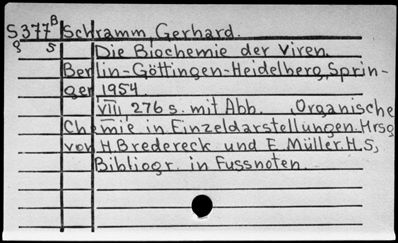 S377B Schramm, Gerhard.
8 5 Die Biochemie der Viren.
Berlin-Göttingen-Heidelberg, Sprin-
ger 1954.
VIII, 276 s. mit Abb. , Organische
Chemie in Einzeldarstellungen. Hrsg
von H. Bredereck und E. Müller. H. 5,
Bibliogr. in Fussnoten.